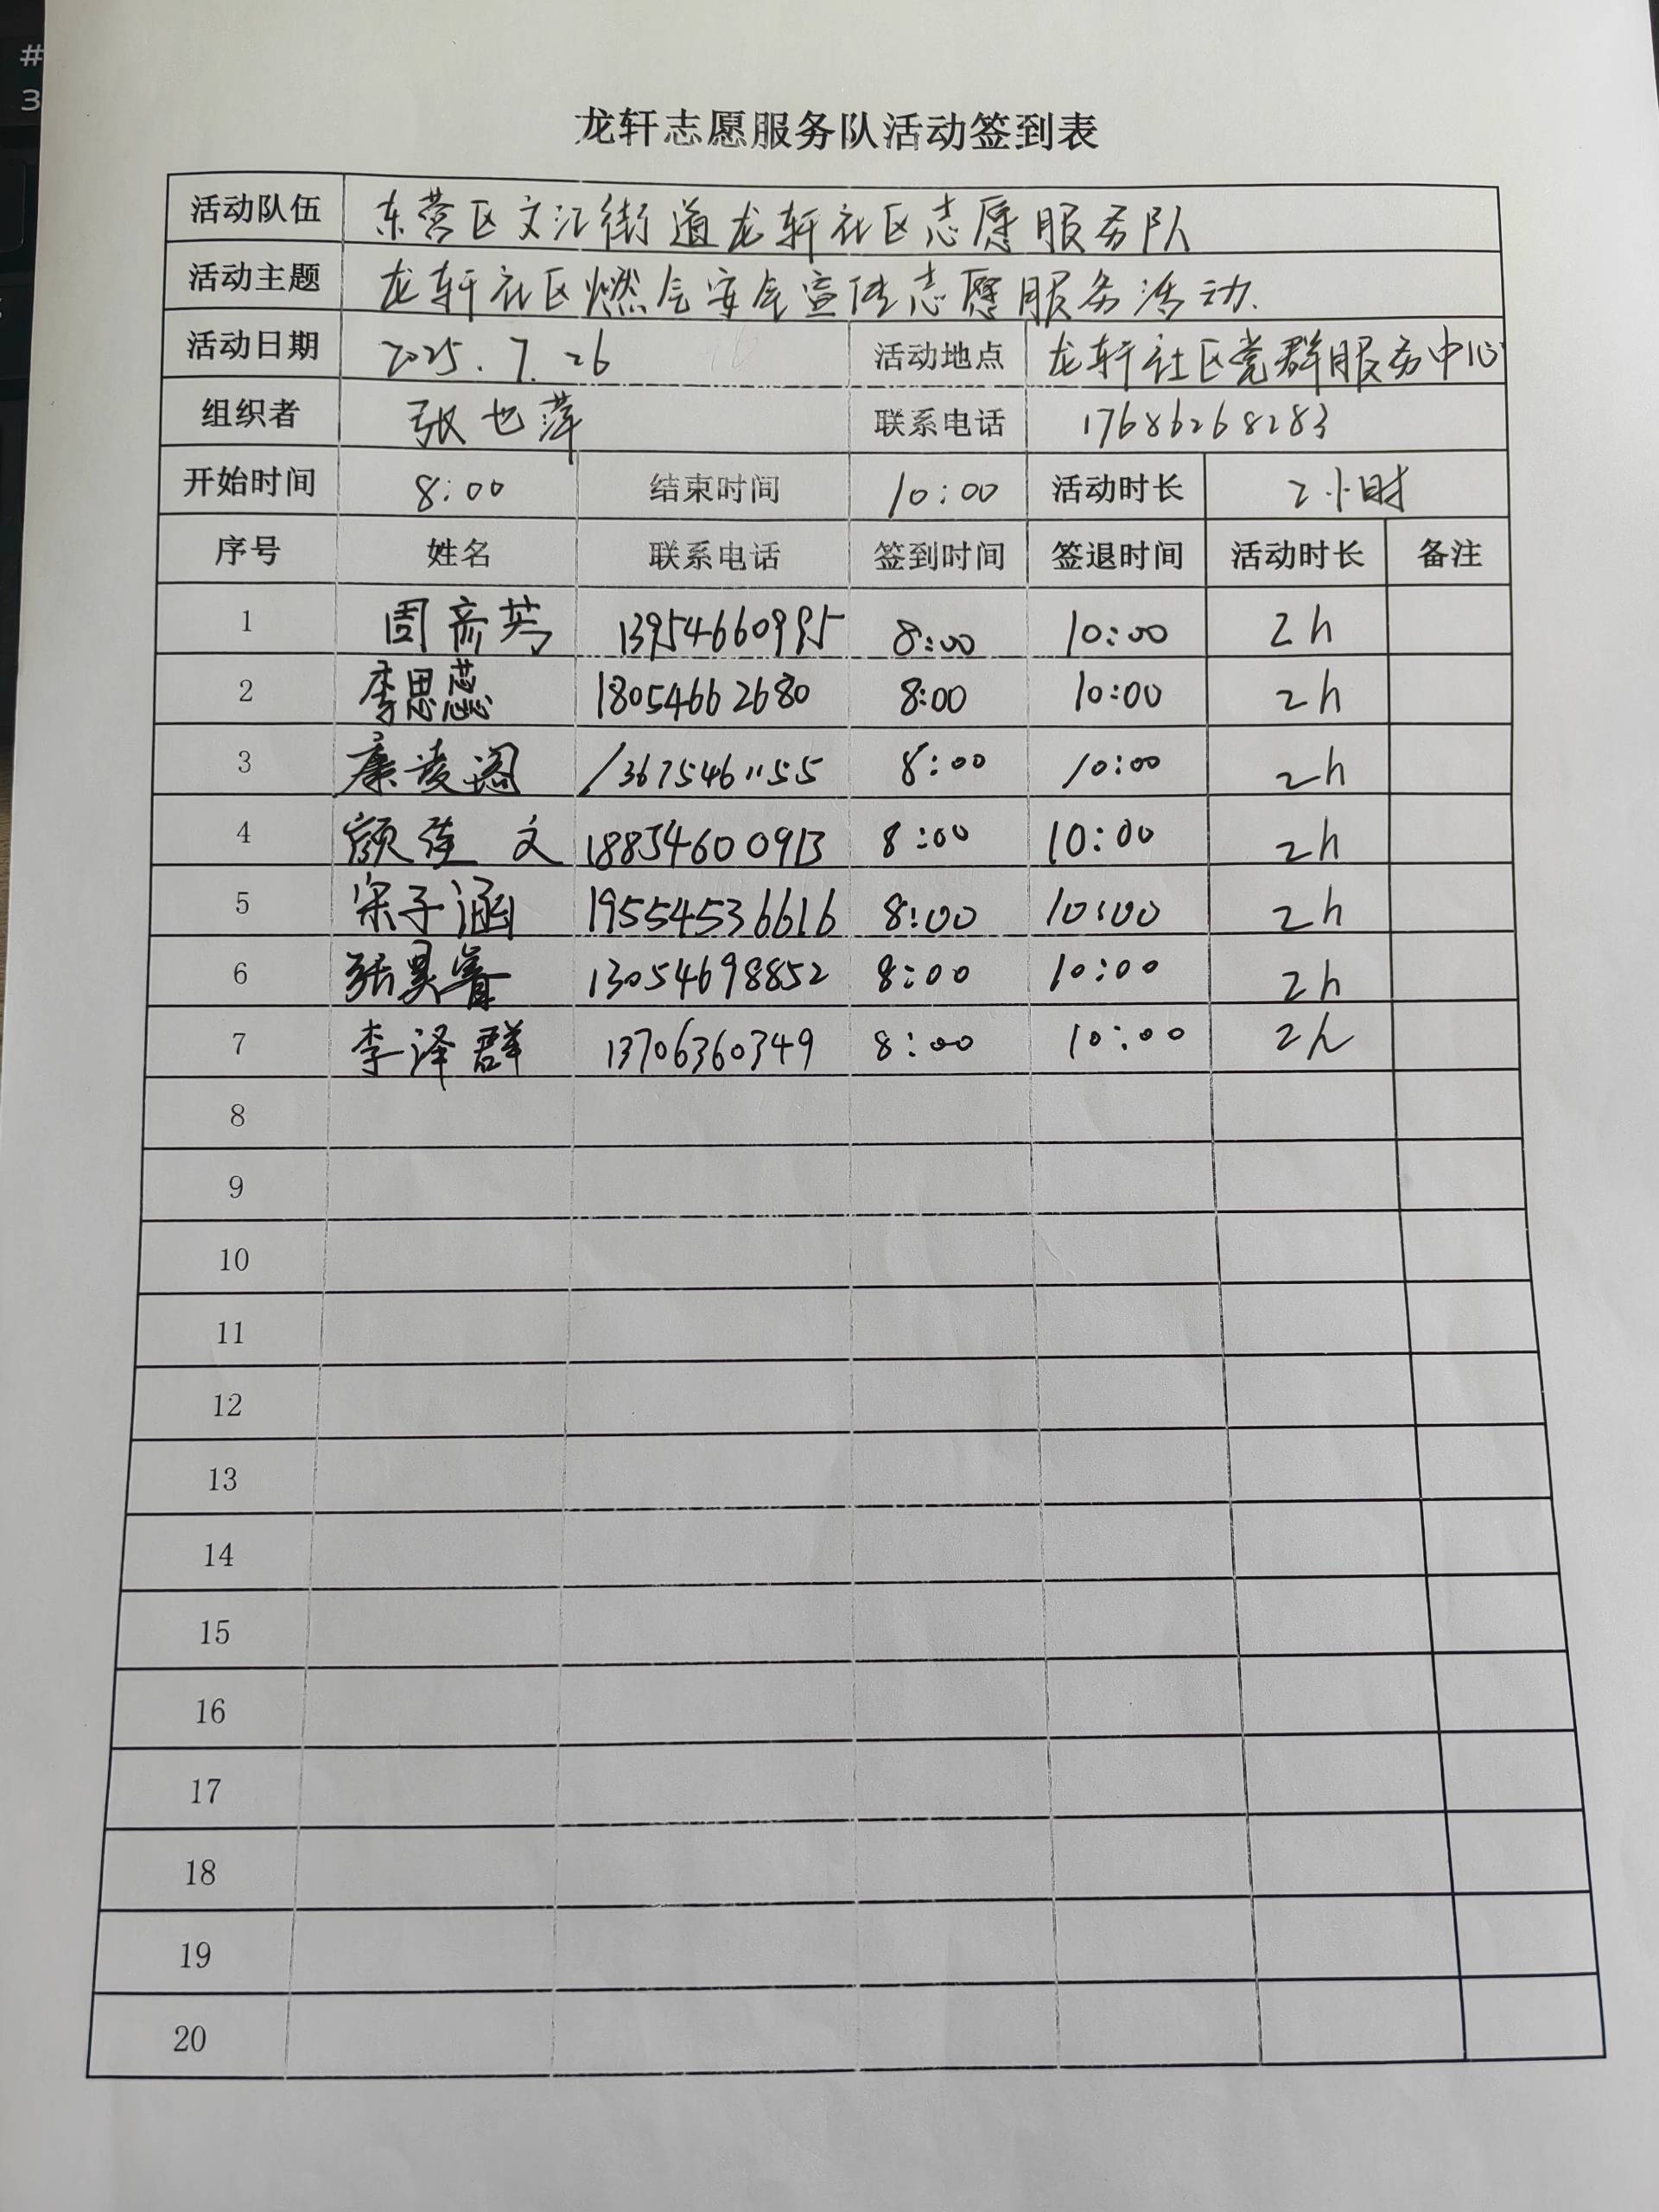 #
3
龙轩志愿服务队活动签到表
活动队伍 东营区文汇街道龙轩社区志愿服务队
活动主题 龙轩社区燃气安全宣传志愿服务活动.
活动日期 2025.7.26 活动地点 龙轩社区党群服务中心
组织者 张也萍 联系电话 17686268283
开始时间 8:00 结束时间 10:00 活动时长 2小时
序号 姓名 联系电话 签到时间 签退时间 活动时长 备注
1 周 13954660995 8:00 10:00 2h
2 李思蕊 18054662680 8:00 10:00 2h
3 康凌阁 13675461155 8:00 10:00 2h
4 颜 文 18854600913 8:00 10:00 2h
5 宋子涵 19554536616 8:00 10:00 2h
6 张昊睿 13054698852 8:00 10:00 2h
7 李泽群 13706360349 8:00 10:00 2h
8
9
10
11
12
13
14
15
16
17
18
19
20